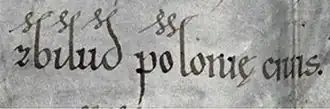 zbilud polonię ciuis.